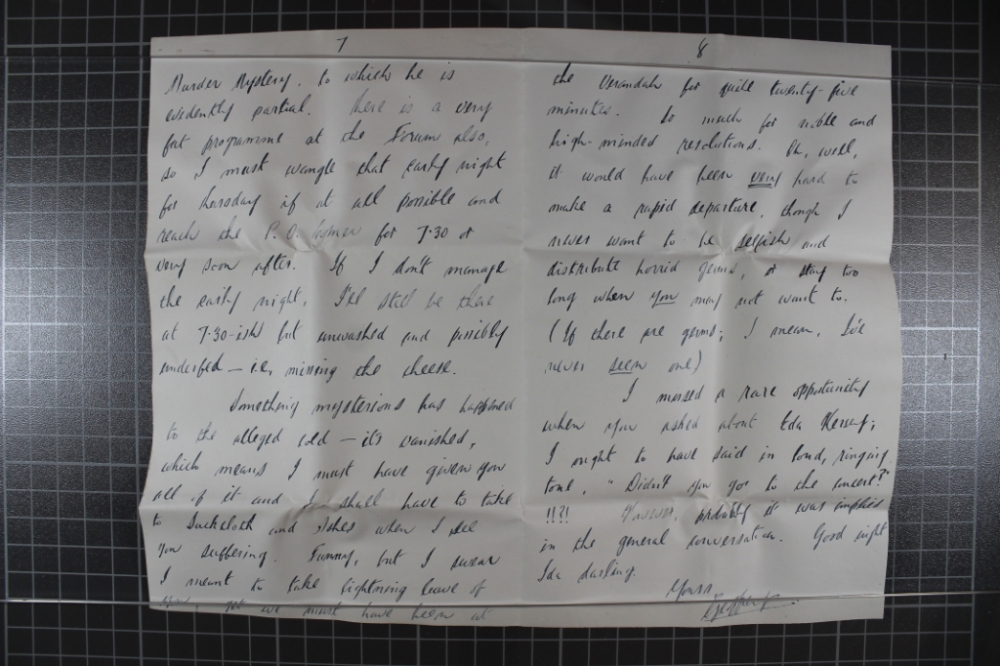 7
Murder Mystery, to which he is
evidently partial. There is a very
fat programme at the Forum also,
so I must wangle that early night
for Thursday if at all possible and
reach the P.O. corner for 7.30 or
very soon after. If I don't manage
the early night, I'll still be there
at 7-30-ish but unwashed and possibly
underfed — i.e., missing the cheese.
Something mysterious has happened
to the alleged cold — it's vanished,
which means I must have given you
all of it and I shall have to take
to Sackcloth and Ashes when I see
you suffering. Funny, but I swear
I meant to take lightning leave of
you, yet we must have been at
8
the Verandah for quite twenty-five
minutes. So much for noble and
high-minded resolutions. Oh, well,
it would have been very hard to
make a rapid departure, though I
never want to be selfish and
distribute horrid germs, or stay too
long when you may not want to.
(If there are germs; I mean, I've
never seen one)
I missed a rare opportunity
when you asked about Eda Kersey;
I ought to have said in loud, ringing
tone, "Didn't you go to the concert?"
!!?! However, probably it was implied
in the general conversation. Good night
Ida darling.
Yours